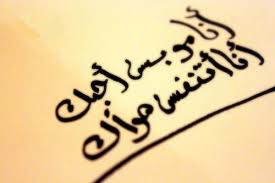 أنا مو بس أحبك
أنا أتنفس هواك